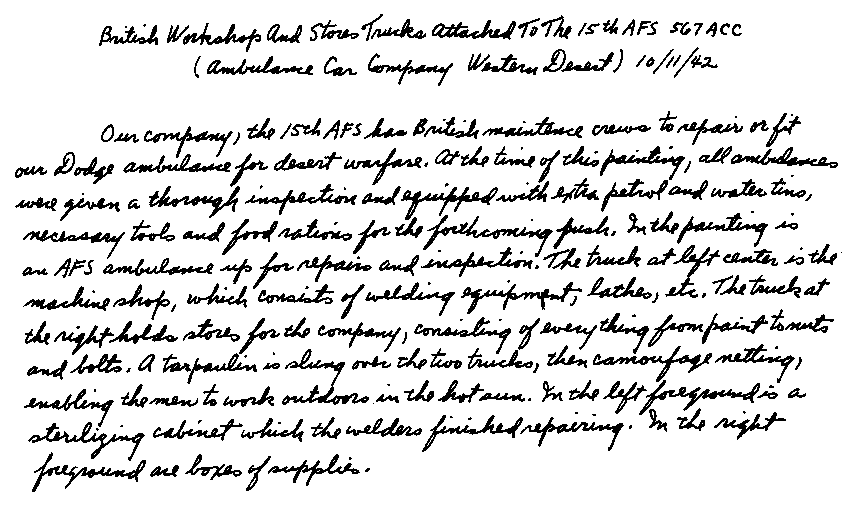 British Workshop And Stores Trucks Attached To The 15th AFS 567 ACC
(Ambulance Car Company Western Desert) 10/11/42
Our company, the 15th AFS has British maintence crews to repair or fit
our Dodge ambulance for desert warfare. At the time of this painting, all ambulances
were given a thorough inspection and equipped with extra petrol and water tins,
necessary tools and food rations for the forthcoming push. In the painting is
an AFS ambulance up for repairs and inspection. The truck at left center is the
machine shop, which consists of welding equipment, lathes, etc. The truck at
the right holds stores for the company, consisting of everything from paint to nuts
and bolts. A tarpaulin is slung over the two trucks, then camoufage netting,
enabling the men to work outdoors in the hot sun. In the left foreground is a
sterilizing cabinet which the welders finished repairing. In the right
foreground are boxes of supplies.